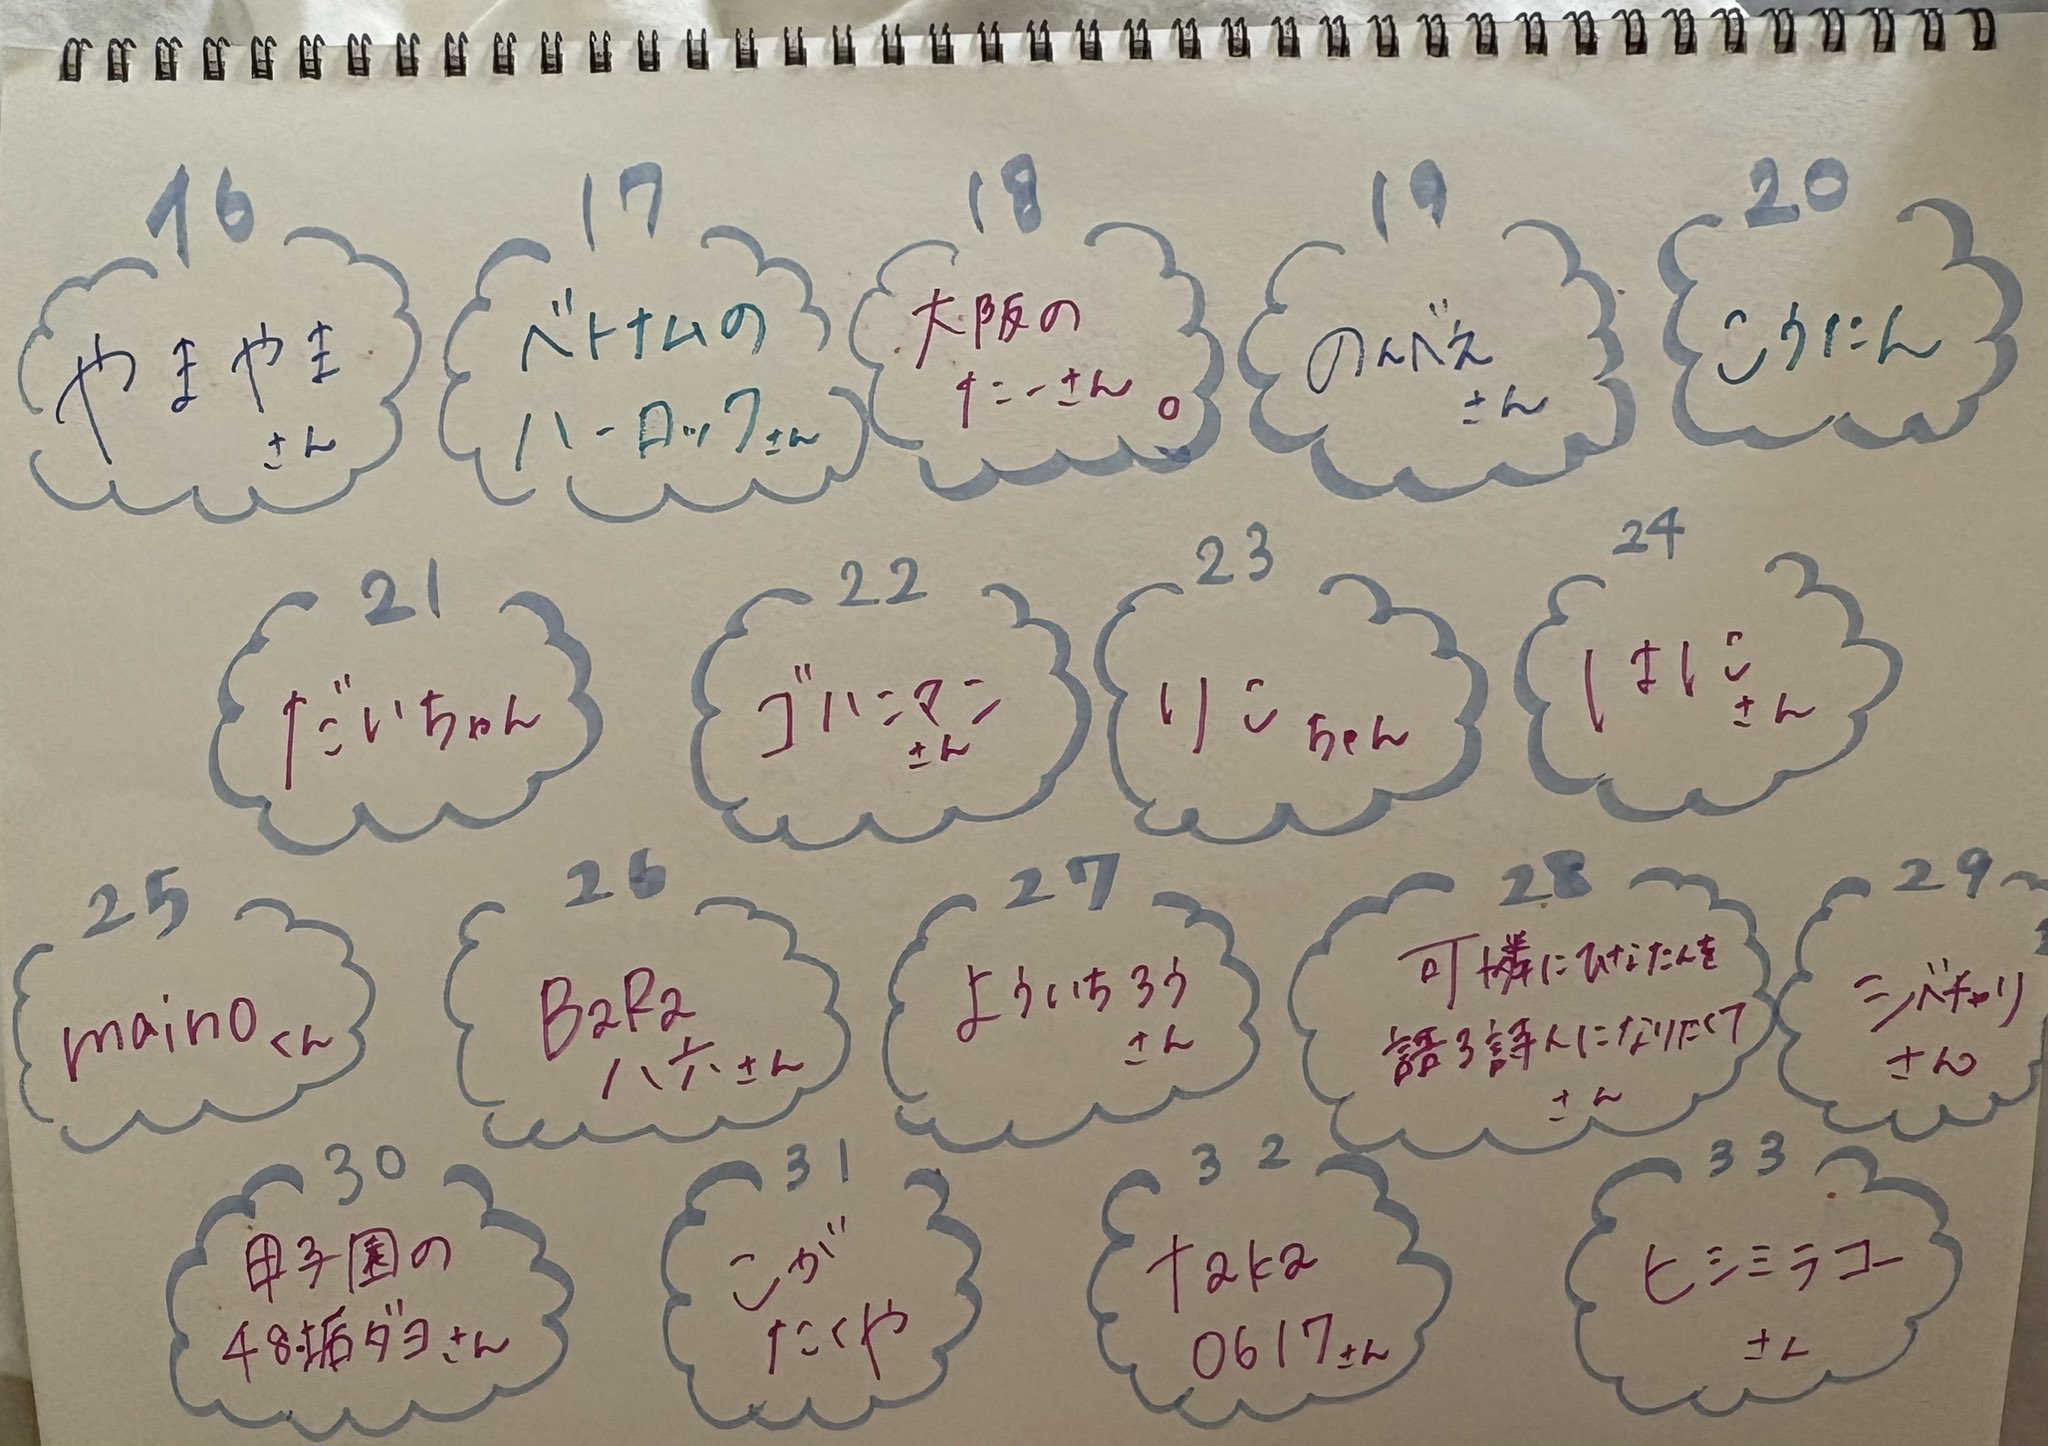 16
やまやま
さん
17
ベトナムの
ハーロックさん
18
大阪の
たーさん。
19
のんべえ
さん
20
こうにん
21
だいちゃん
22
ゴハンマン
さん
23
りこちゃん
24
しほしこ
さん
25
mainoくん
26
BaRa
八六さん
27
よういちろう
さん
28
可憐にひなたんを
語る詩人になりたくて
さん
29
シバチャリ
さん
30
甲子園の
48垢ダヨさん
31
こが
たくや
32
taka
0617さん
33
ヒシミラコー
さん